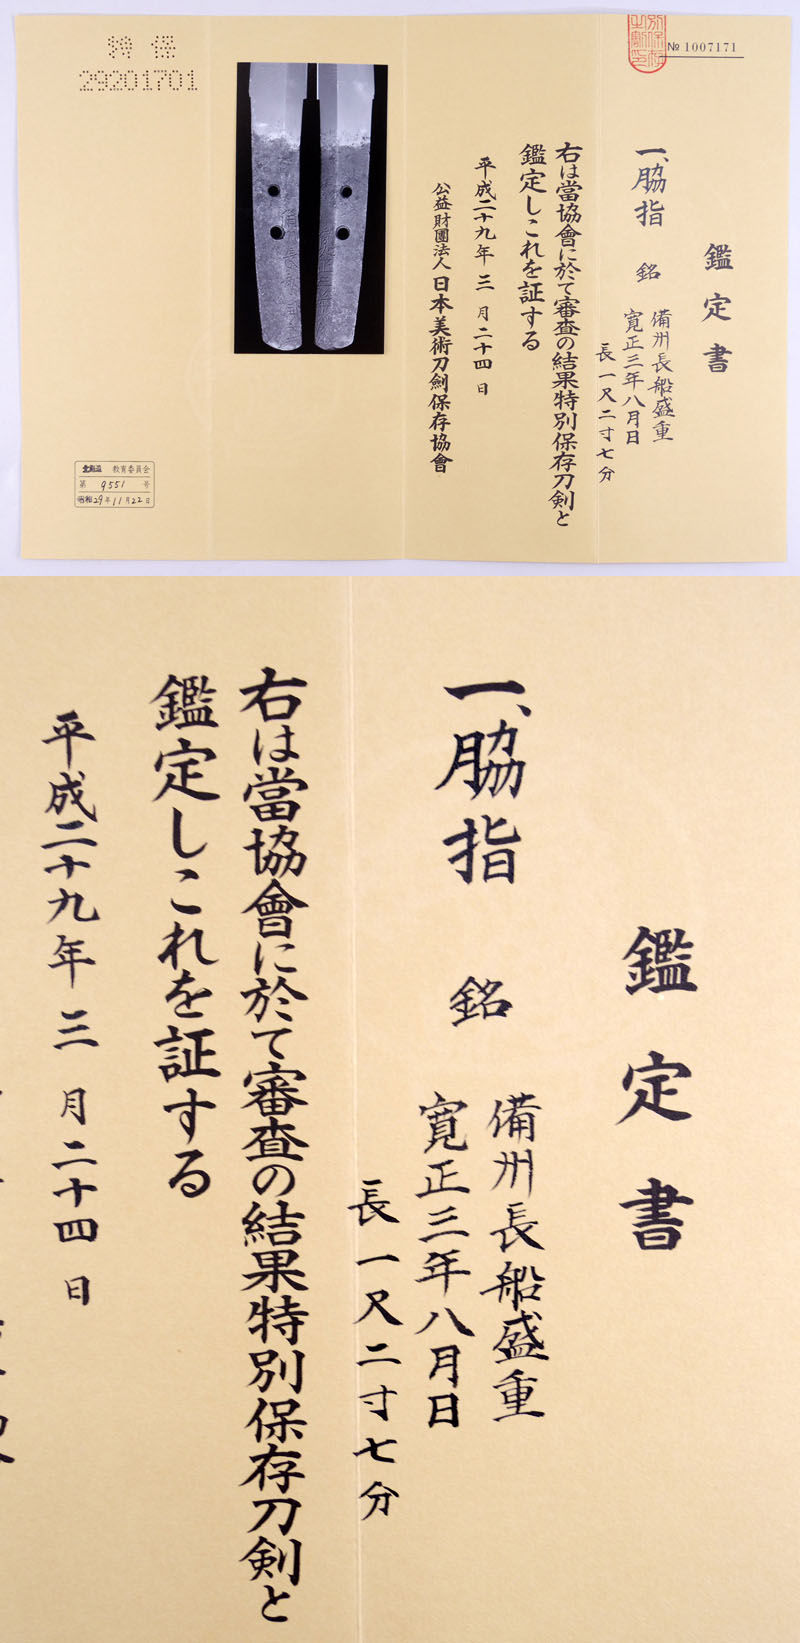 別保存
之割印
№ 1007171
鑑定書
一、脇指 銘 備州長船盛重
寛正三年八月日
長一尺二寸七分
右は當協會に於て審査の結果特別保存刀剣と
鑑定しこれを証する
平成二十九年三月二十四日
公益財團法人日本美術刀劍保存協會
特保
29201701
北海道教育委員会
第9551号
昭和29年11月22日
鑑定書
一、脇指 銘 備州長船盛重
寛正三年八月日
長一尺二寸七分
右は當協會に於て審査の結果特別保存刀剣と
鑑定しこれを証する
平成二十九年三月二十四日